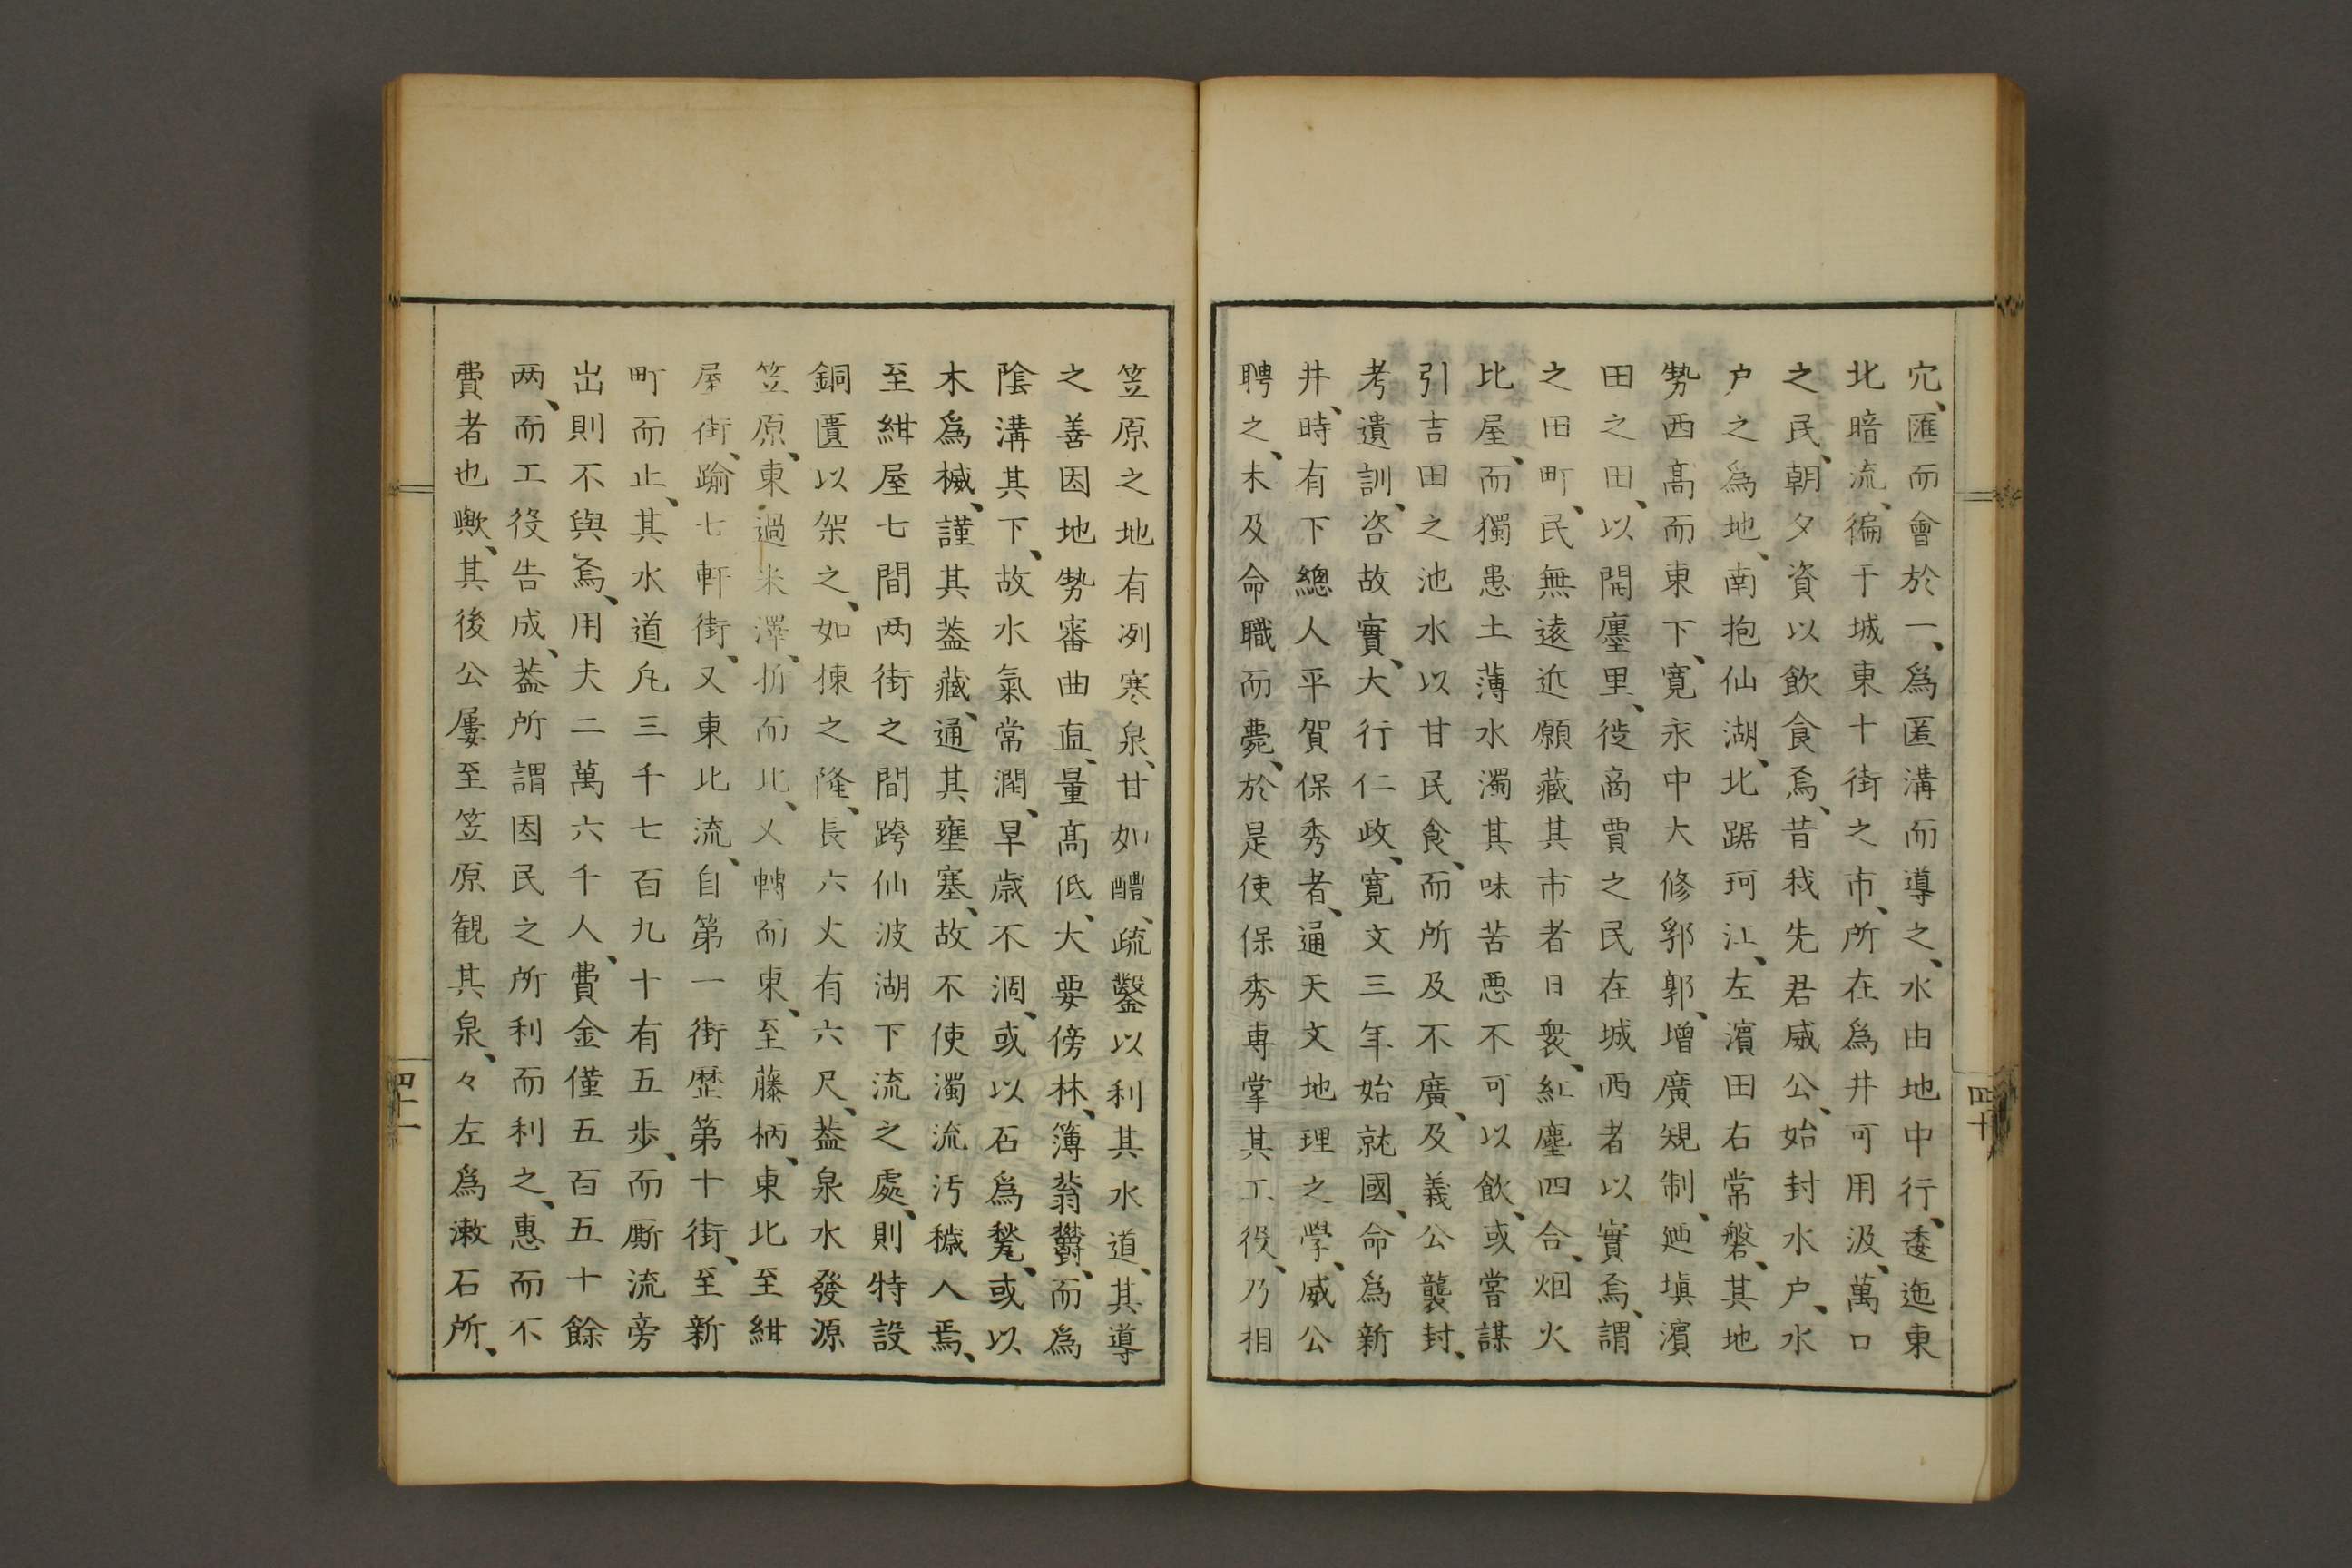 穴、匯而會於一、爲匿溝而導之、水由地中行、逶迤東
北暗流、徧于城東十街之市、所在爲井可用汲、萬口
之民、朝夕資以飲食焉、昔我先君威公、始封水户、水
户之爲地、南抱仙湖、北踞珂江、左濱田右常磐、其地
勢西髙而東下、寛永中大修郛郭、増廣䂓制、廼塡濱
田之田、以開廛里、徙商賈之民在城西者以實焉、謂
之田町、民無遠近願藏其市者日衆、紅塵四合、烟火
比屋、而獨患土薄水濁其味苦悪不可以飲、或嘗謀
引吉田之池水以甘民食、而所及不廣、及義公襲封、
考遺訓、咨故實、大行仁政、寛文三年始就國、命爲新
井、時有下總人平賀保秀者、通天文地理之學、威公
聘之、未及命職而薨、於是使保秀専掌其工役、乃相
四十
笠原之地有冽寒泉、甘如醴、疏鑿以利其水道、其導
之善因地勢審曲直、量髙低、大要傍林、簿蓊欝、而爲
陰溝其下、故水氣常潤、旱歳不涸、或以石爲甃、或以
木爲楲、謹其葢藏、通其壅塞、故不使濁流汚穢入焉、
至紺屋七間两街之間跨仙波湖下流之處、則特設
銅匱以架之、如棟之隆、長六丈有六尺、葢泉水發源
笠原、東過米澤、折而北、乂轉而東、至藤柄、東北至紺
屋街、踰七軒街、又東北流、自第一街歴第十街、至新
町而止、其水道凡三千七百九十有五歩、而厮流旁
出則不與焉、用夫二萬六千人、費金僅五百五十餘
两、而工役告成、葢所謂因民之所利而利之、惠而不
費者也歟、其後公屢至笠原観其泉、々左爲漱石所、
四十一